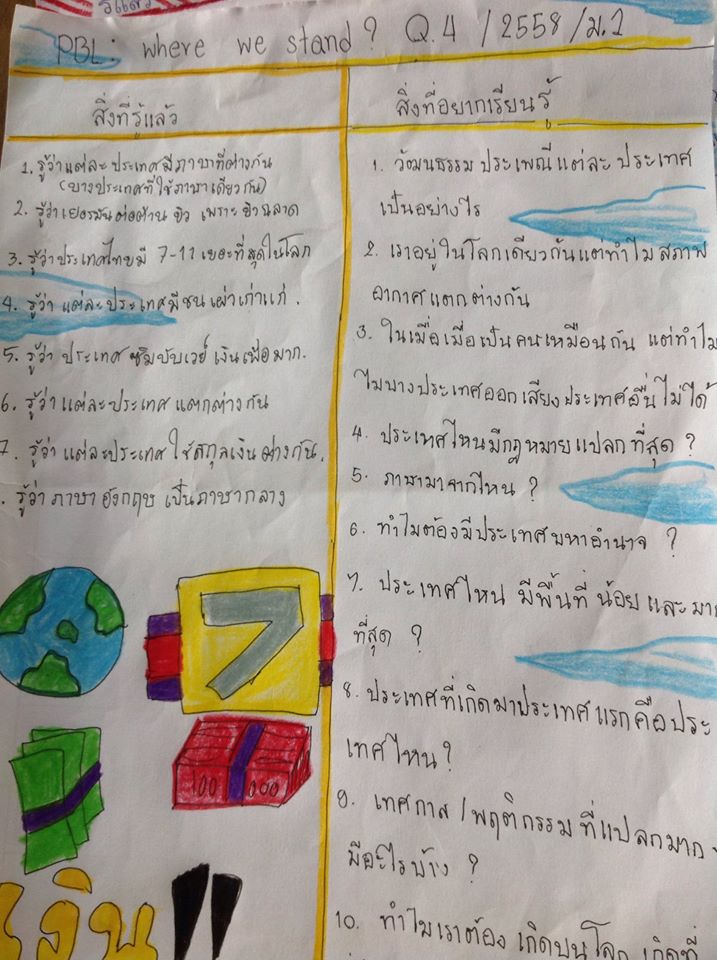 PBL: where we stand? Q.4 / 2558 / ม.1
สิ่งที่รู้แล้ว
1. รู้ว่าแต่ละประเทศมีภาษาที่ต่างกัน
(บางประเทศที่ใช้ภาษาเดียวกัน)
2. รู้ว่าเยอรมันต่อต้าน ยิว เพราะ ยิวฉลาด
3. รู้ว่าประเทศไทยมี 7-11 เยอะที่สุดในโลก
4. รู้ว่า แต่ละประเทศมีชนเผ่าเก่าแก่.
5. รู้ว่า ประเทศ ซิมบับเวย์ เงินเฟ้อมาก.
6. รู้ว่า แต่ละประเทศ แตกต่างกัน
7. รู้ว่า แต่ละประเทศ ใช้สกุลเงินต่างกัน.
. รู้ว่า ภาษาอังกฤษ เป็นภาษากลาง
7
100 000
เงิน!!
สิ่งที่อยากเรียนรู้
1. วัฒนธรรม ประเพณีแต่ละ ประเทศ
เป็นอย่างไร
2. เราอยู่ในโลกเดียวกันแต่ทำไม สภาพ
อากาศแตกต่างกัน
3. ในเมื่อเมื่อเป็นคนเหมือนกัน แต่ทำไม
ไมบางประเทศออกเสียงประเทศอื่นไม่ได้
4. ประเทศไหนมีกฎหมายแปลกที่สุด ?
5. ภาษามาจากไหน ?
6. ทำไมต้องมีประเทศมหาอำนาจ ?
7. ประเทศไหน มีพื้นที่ น้อย และ มาก
ที่สุด ?
8. ประเทศที่เกิดมาประเทศแรกคือประ
เทศไหน?
9. เทศกาล / พฤติกรรม ที่แปลกมาก
มีอะไรบ้าง ?
10. ทำไมเราต้อง เกิดบนโลก เกิดที่